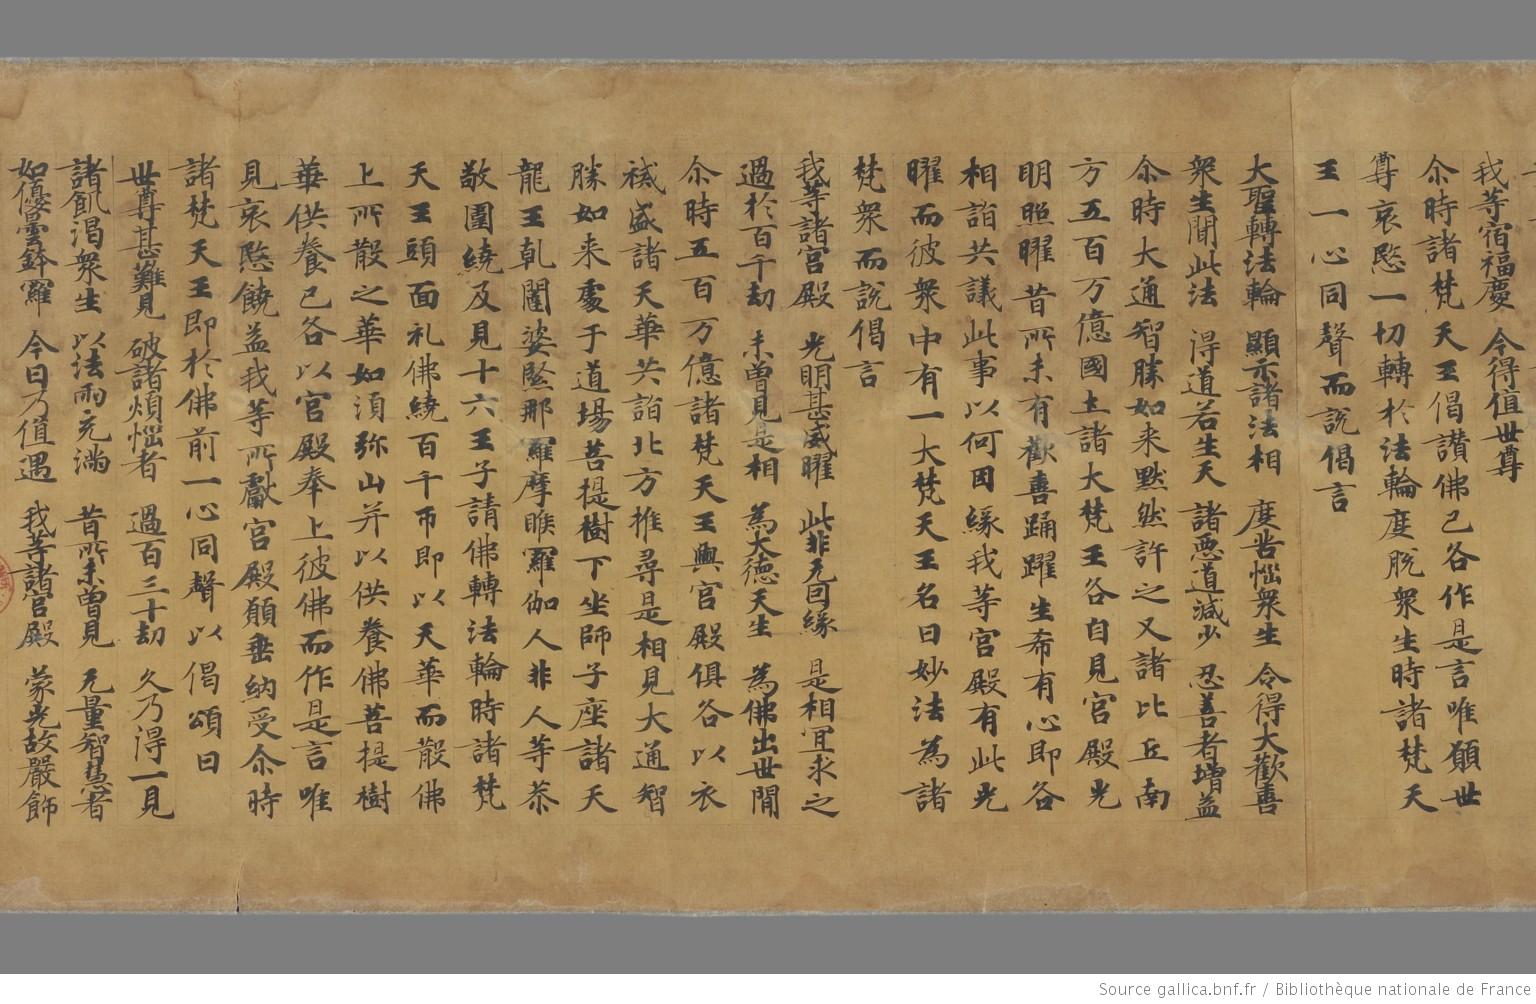 我等宿福慶 今得值世尊
尒時諸梵天王偈讃佛已各作是言唯願世
尊哀愍一切轉於法輪度脫衆生時諸梵天
王一心同聲而說偈言
大聖轉法輪 顯示諸法相 度苦惱衆生 令得大歡喜
衆生聞此法 得道若生天 諸惡道減少 忍善者增益
尒時大通智勝如来默然許之又諸比丘南
方五百万億國土諸大梵王各自見宫殿光
明照曜昔所未有歡喜踊躍生希有心即各
相詣共議此事以何因緣我等宫殿有此光
曜而彼衆中有一大梵天王名曰妙法為諸
梵衆而說偈言
我等諸宫殿 光明甚威曜 此非无因緣 是相冝求之
過於百千劫 未曽見是相 為大德天生 為佛出世間
尒時五百万億諸梵天王與宫殿俱各以衣
祴盛諸天華共詣北方推尋是相見大通智
勝如来處于道場菩提樹下坐師子座諸天
龍王乹闥婆緊那羅摩睺羅伽人非人等恭
敬圍繞及見十六王子請佛轉法輪時諸梵
天王頭面礼佛繞百千帀即以天華而散佛
上所散之華如須弥山并以供養佛菩提樹
華供養已各以宫殿奉上彼佛而作是言唯
見哀愍饒益我等所獻宫殿願垂納受尒時
諸梵天王即於佛前一心同聲以偈頌曰
世尊甚難見 破諸煩惱者 過百三十劫 久乃得一見
諸飢渴衆生 以法雨充滿 昔所未曾見 无量智慧者
如優曇鉢羅 今日乃值遇 我等諸宫殿 蒙光故嚴飾
Source gallica.bnf.fr / Bibliothèque nationale de France